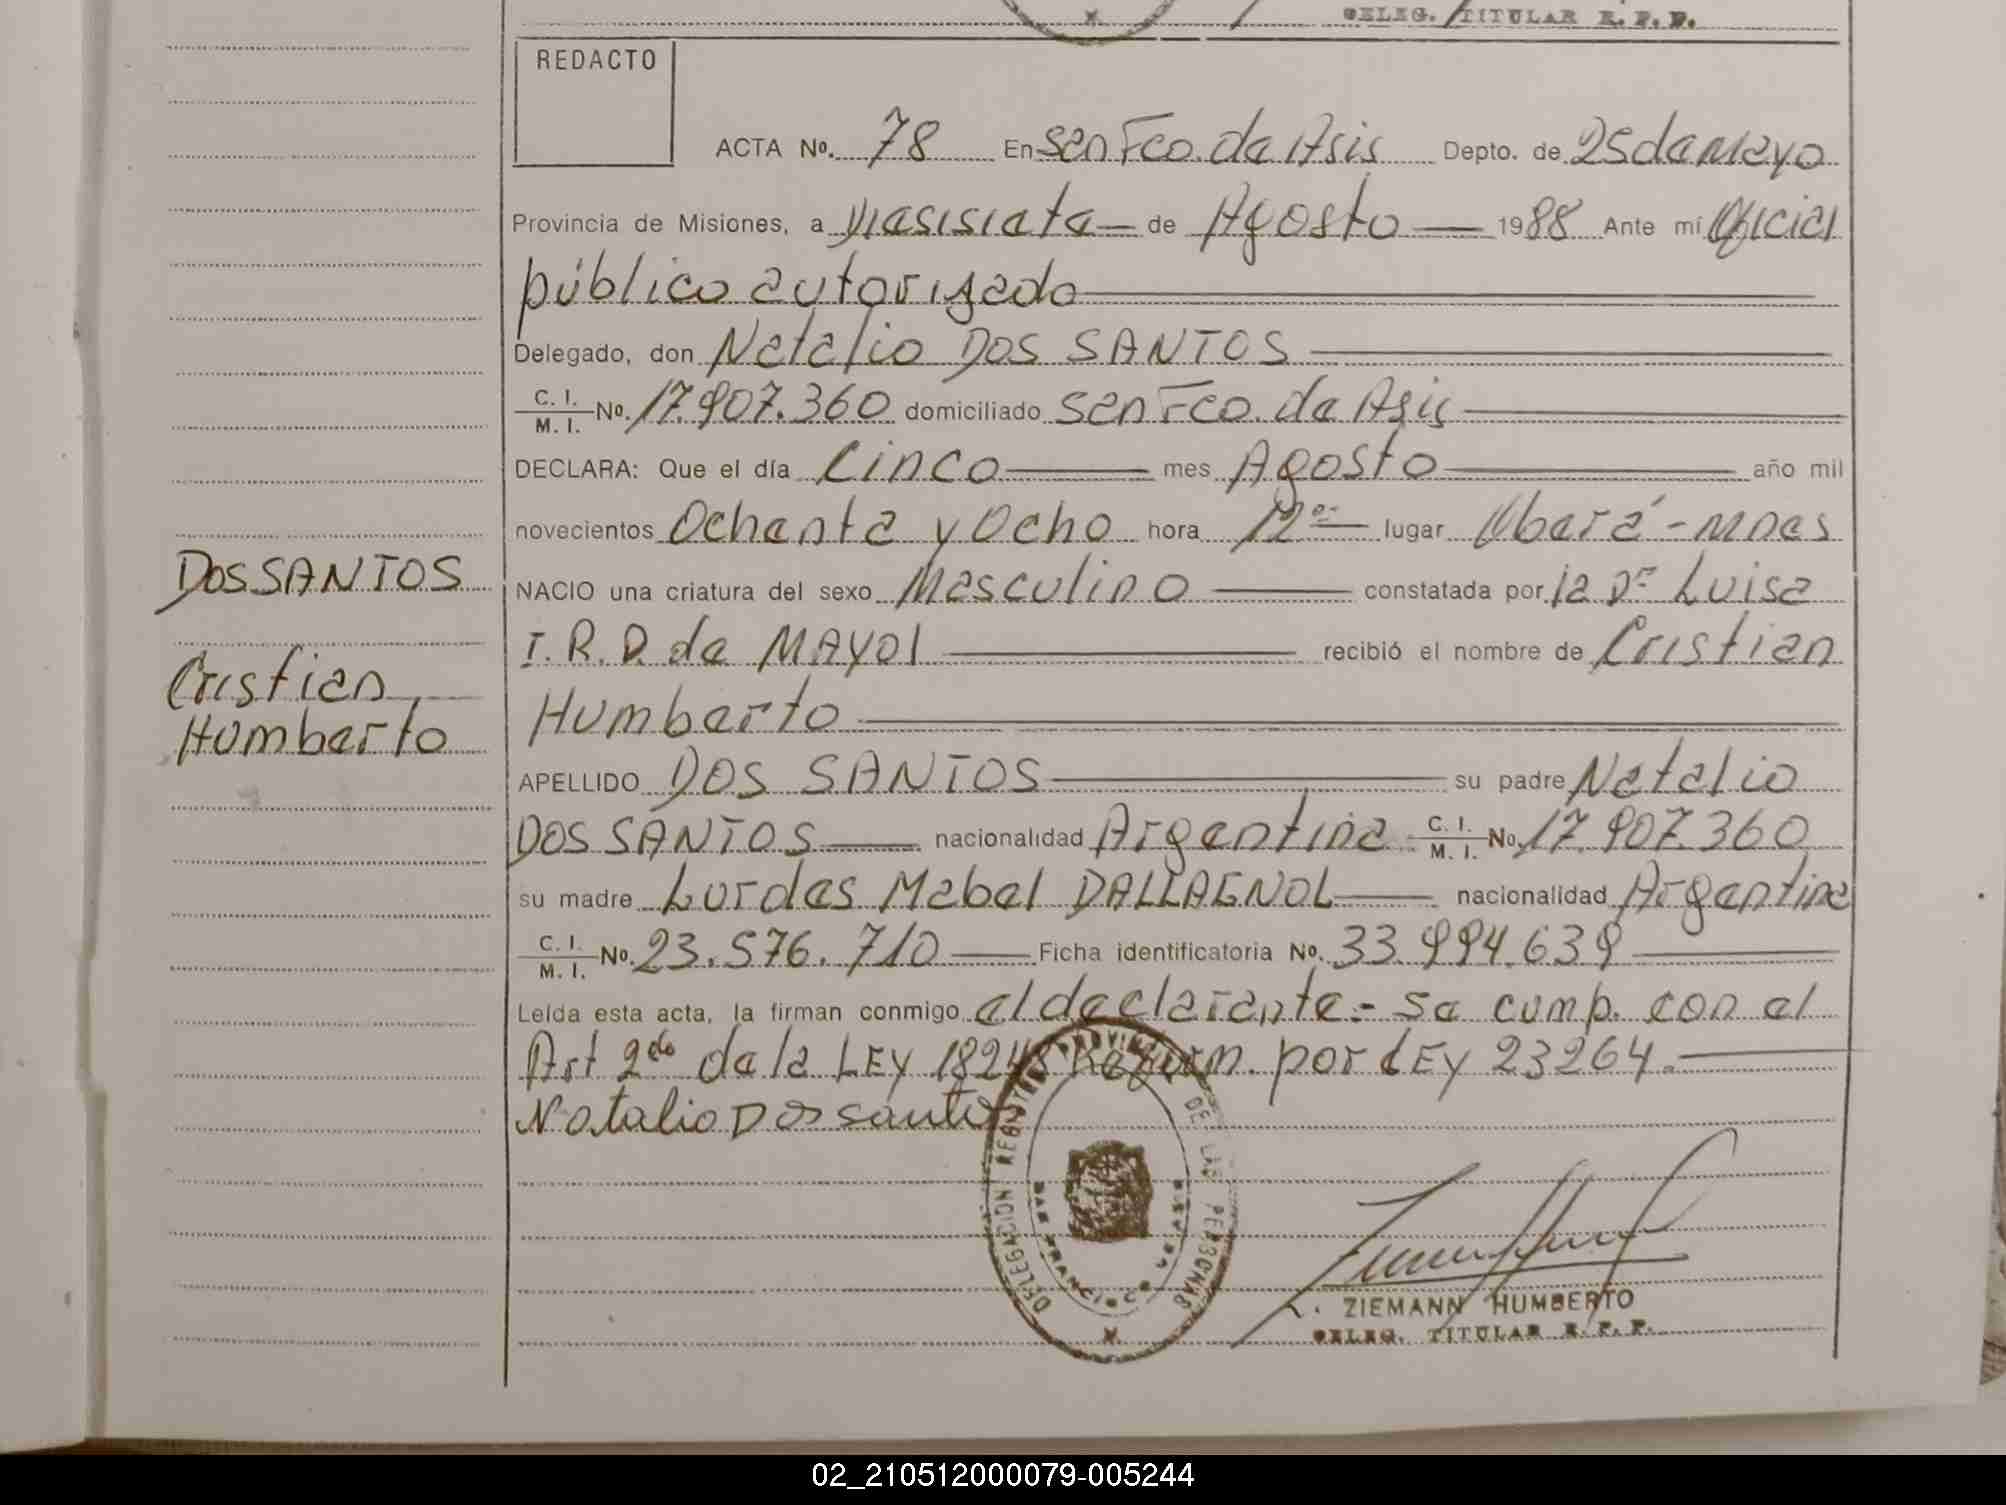 DELEG. TITULAR R. P. P.
REDACTO
ACTA No. 78 En San Fco. de Asis Depto. de 25 de Mayo
Provincia de Misiones, a Diesisiete de Agosto 1988 Ante mí Oficial
público autorizado
Delegado, don Natalio DOS SANTOS
C. I. M. I. No. 17.907.360 domiciliado San Fco. de Asis
DECLARA: Que el día Cinco mes Agosto año mil
novecientos Ochenta y Ocho hora 12 lugar Oberá - Mnes
DOS SANTOS
NACIO una criatura del sexo Masculino constatada por la Dra Luisa
I. R. D. de MAYOL recibió el nombre de Cristian
Cristian
Humberto
Humberto
APELLIDO DOS SANTOS su padre Natalio
DOS SANTOS nacionalidad Argentina C. I. M. I. No. 17.907.360
su madre Lurdes Mabel DALLAGNOL nacionalidad Argentina
C. I. M. I. No. 23.576.710 Ficha identificatoria No. 33.994.639
Leída esta acta, la firman conmigo el declarante.- Se cump. con el
Art 2do de la LEY 18248 Reform. por LEY 23264.
Natalio Dos santos
DELEGACION REGISTRO PROVINCIAL DE LAS PERSONAS
SAN FRANCISCO DE ASIS
ZIEMANN HUMBERTO
DELEG. TITULAR R. P. P.
02_210512000079-005244